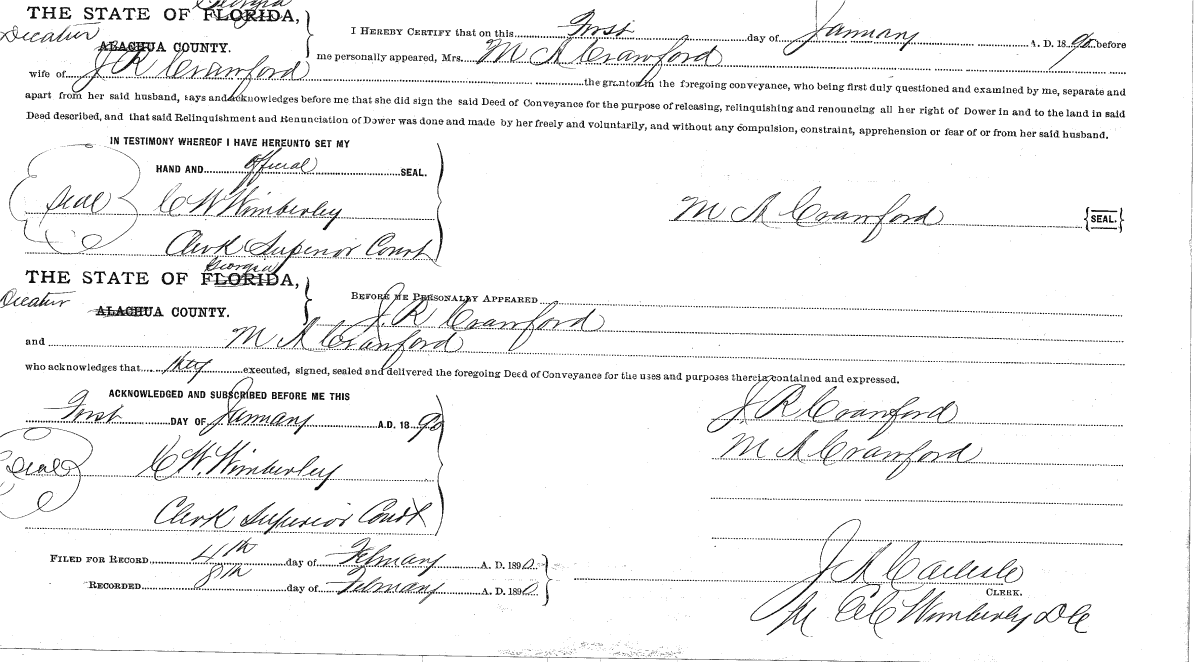 Georgia
THE STATE OF FLORIDA,
Decatur
ALACHUA COUNTY.
I HEREBY CERTIFY that on this First day of January A. D. 18 90 before
me personally appeared, Mrs. M A Crawford
wife of J R Crawford the grantor in the foregoing conveyance, who being first duly questioned and examined by me, separate and
apart from her said husband, says and acknowledges before me that she did sign the said Deed of Conveyance for the purpose of releasing, relinquishing and renouncing all her right of Dower in and to the land in said
Deed described, and that said Relinquishment and Renunciation of Dower was done and made by her freely and voluntarily, and without any compulsion, constraint, apprehension or fear of or from her said husband.
IN TESTIMONY WHEREOF I HAVE HEREUNTO SET MY
HAND AND official SEAL.
Seal C W Wimberley
M A Crawford {SEAL.}
Clerk Superior Court
Georgia
THE STATE OF FLORIDA,
Decatur
ALACHUA COUNTY.
BEFORE ME PERSONALLY APPEARED
J. R Crawford
and M A Crawford
who acknowledges that they executed, signed, sealed and delivered the foregoing Deed of Conveyance for the uses and purposes therein contained and expressed.
ACKNOWLEDGED AND SUBSCRIBED BEFORE ME THIS
First DAY OF January A.D. 18 90
J R Crawford
M A Crawford
Seal C W. Wimberley
Clerk Superior Court
FILED FOR RECORD 4th day of February A. D. 1890.
RECORDED 8th day of February A. D. 1890.
J A Carlisle
CLERK.
Wimberley D C